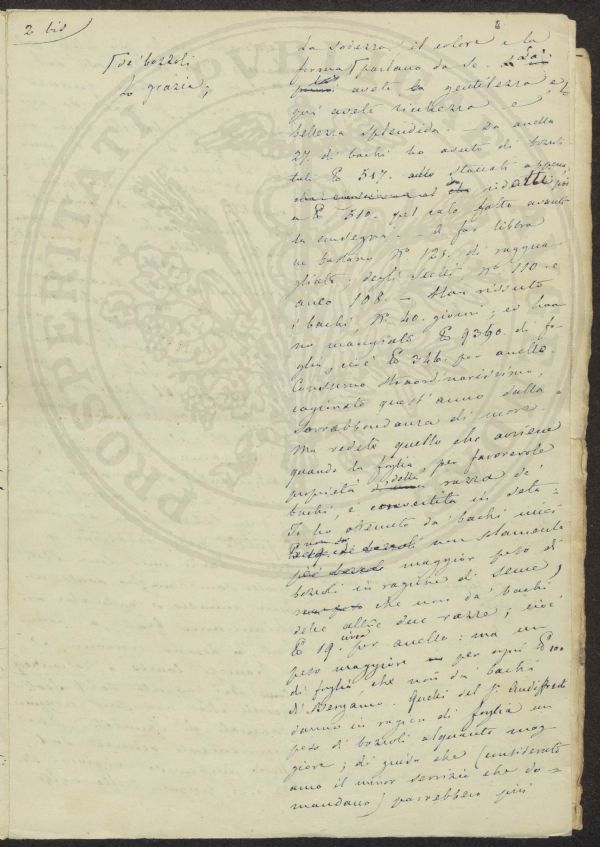 2 bis
de' bozzoli
la grazia;
La sodezza, il colore e la
forma parlano da se.
avete la gentilezza e
qui avete ricchezza e
bellezza splendida. Da anella
27. di bachi ho avuto di bozzoli
517. staccati appena,
ridotti poi
a 510. pel calo fatto avanti
la consegna. A far libbra
ne bastano N.° 123. di raggua-
gliati; degli scelti N.° 110. e
anco 108. — Han vissuto
i bachi, N.° 40. giorni; ed han-
no mangiato 9350. di fo-
glia, cioè 346. per anello.
Consumo straordinarissimo,
cagionato quest'anno dalla
sovrabbondanza di more.
Ma vedete quello che avviene
quando la foglia, per favorevole
proprietà della razza de'
bachi, è convertita in seta.
Io ho ottenuto da' bachi miei
non solamente
maggior peso di
bozzoli in ragione di seme,
che non da' bachi
delle altre due razze; cioè
19. circa per anello: ma un
peso maggiore per ogni 100
di foglia, che non da' bachi
di Bergamo. Quelli del Sr. Audiffredi
danno in ragion di foglia un
peso di bozzoli alquanto mag-
giore; di guisa che (considerato
anco il minor servizio che do-
mandano) parrebbero più